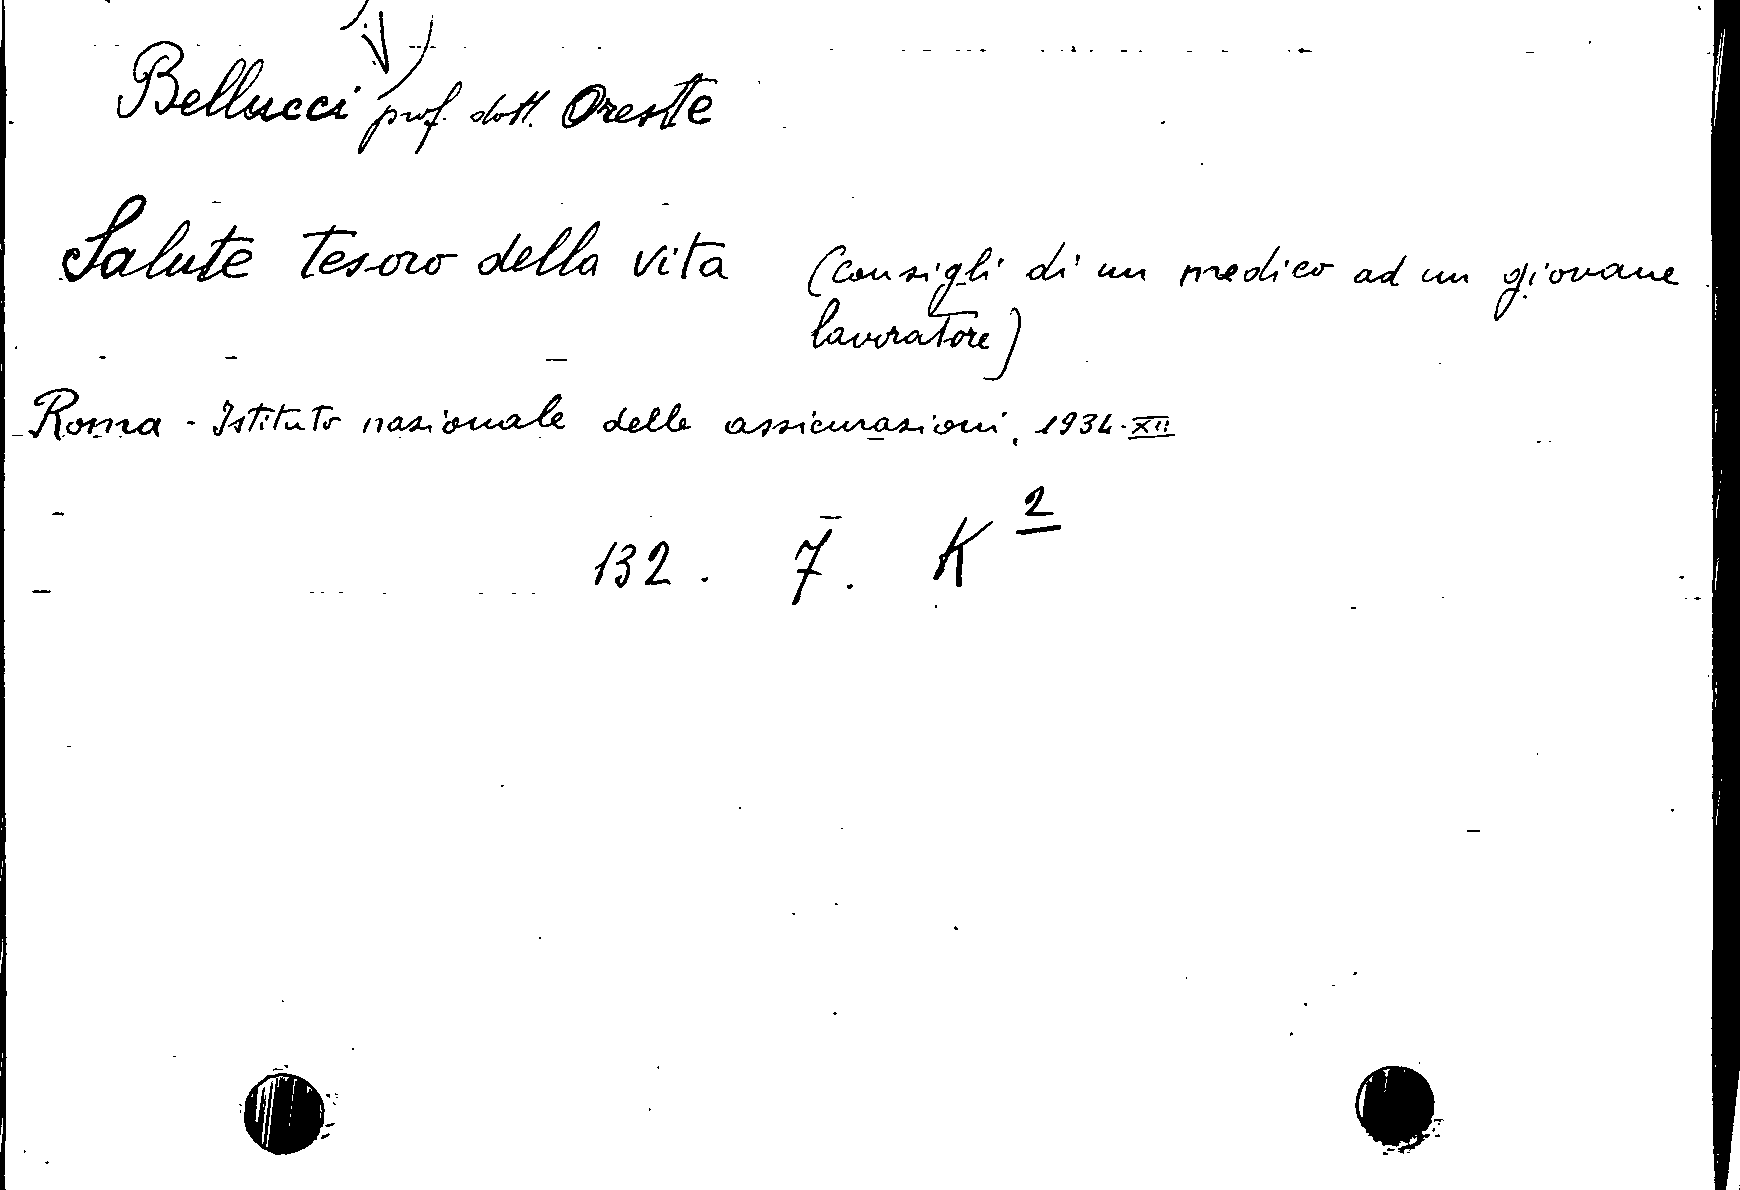 Bellucci prof. dott. Oreste
Salute tesoro della vita (consigli di un medico ad un giovane
lavoratore)
Roma - Istituto nazionale delle assicurazioni, 1934-XII
132. 7. K²